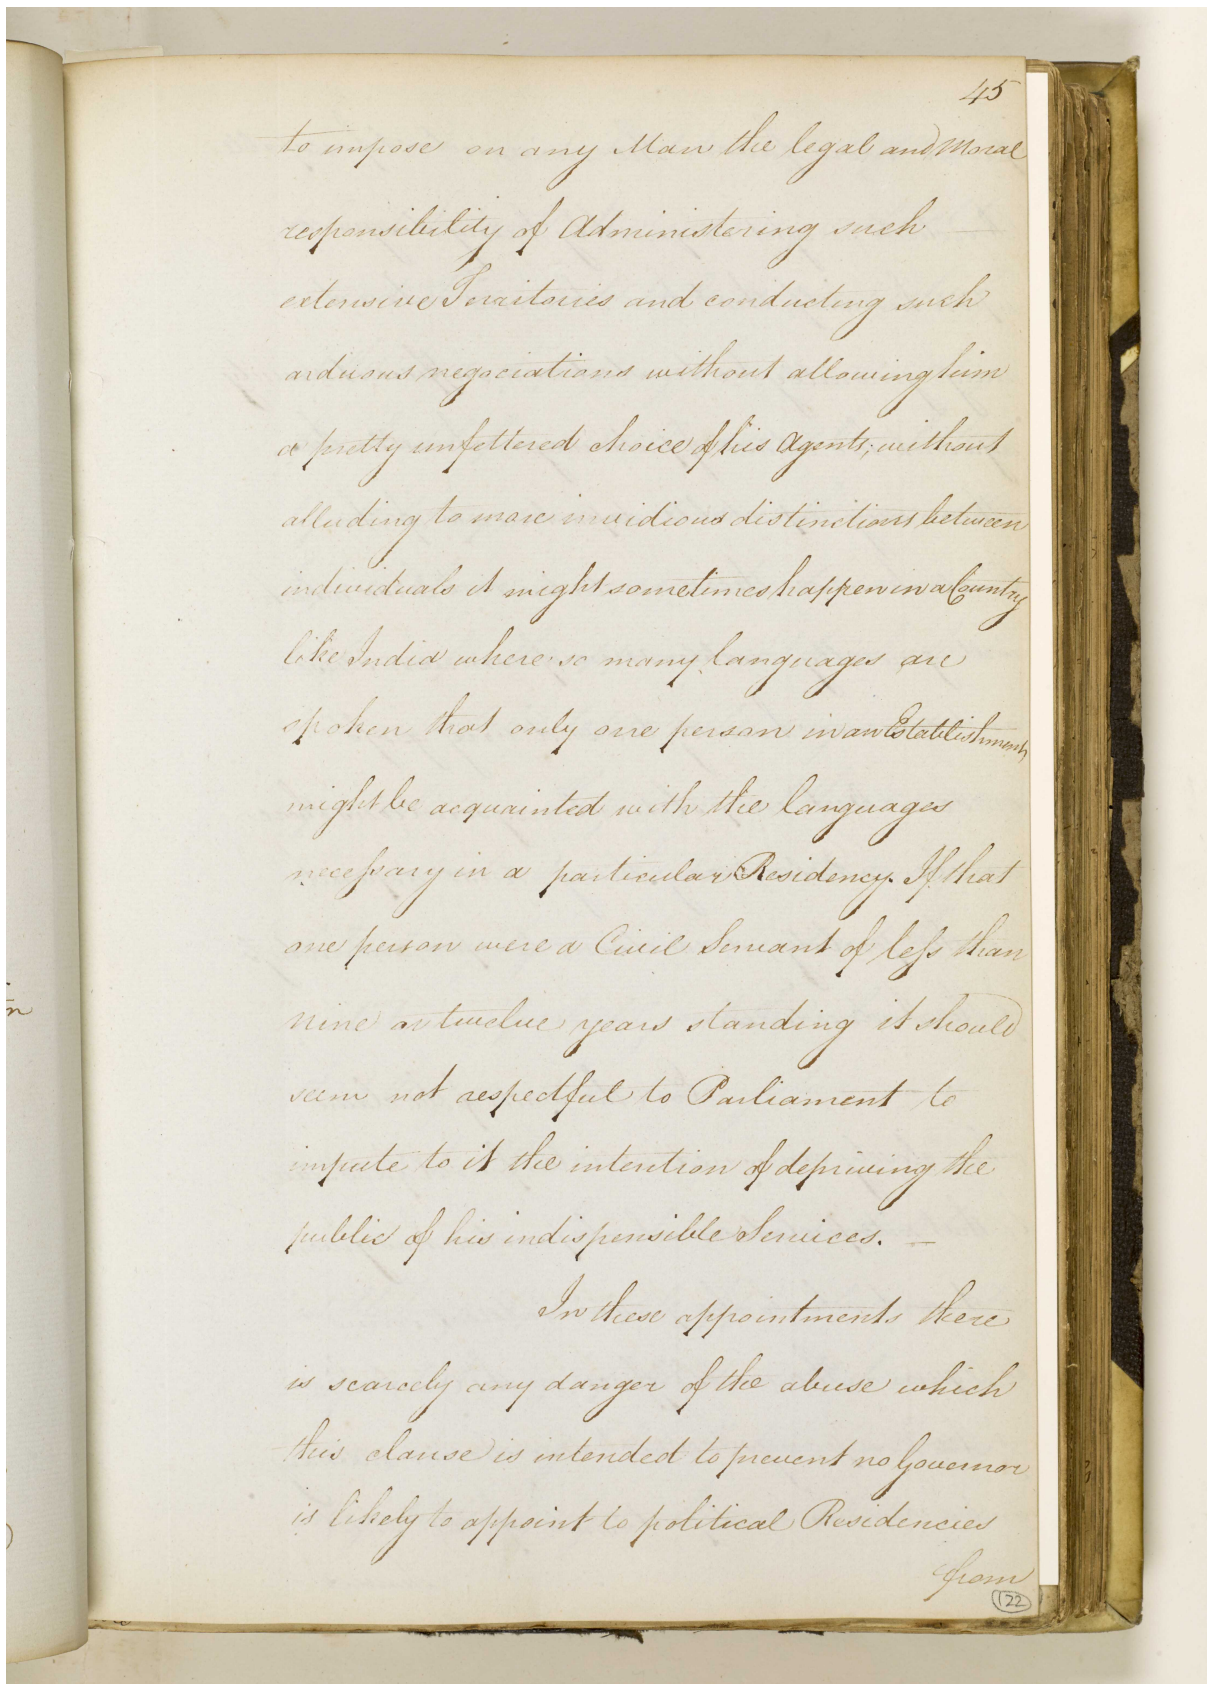 45
to impose on any Man the legal and Moral
responsibility of Administering such
extensive Territories and conducting such
arduous negociations without allowing him
a pretty unfettered choice of his Agents; without
alluding to more invidious distinctions between
individuals it might sometimes happen in a Country
like India where so many languages are
spoken that only one person in an Establishment
might be acquainted with the languages
necessary in a particular Residency. If that
one person were a Civil Servant of less than
nine or twelve years standing it should
seem not respectful to Parliament to
impute to it the intention of depriving the
public of his indispensible Services. —
In these appointments there
is scarcely any danger of the abuse which
this clause is intended to prevent no Governor
is likely to appoint to political Residencies
from
122